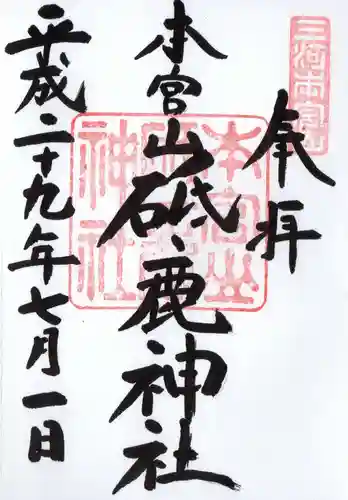 三河本宮山
奉拝
本宮山砥鹿神社
本宮山
砥鹿
神社
平成二十九年七月一日